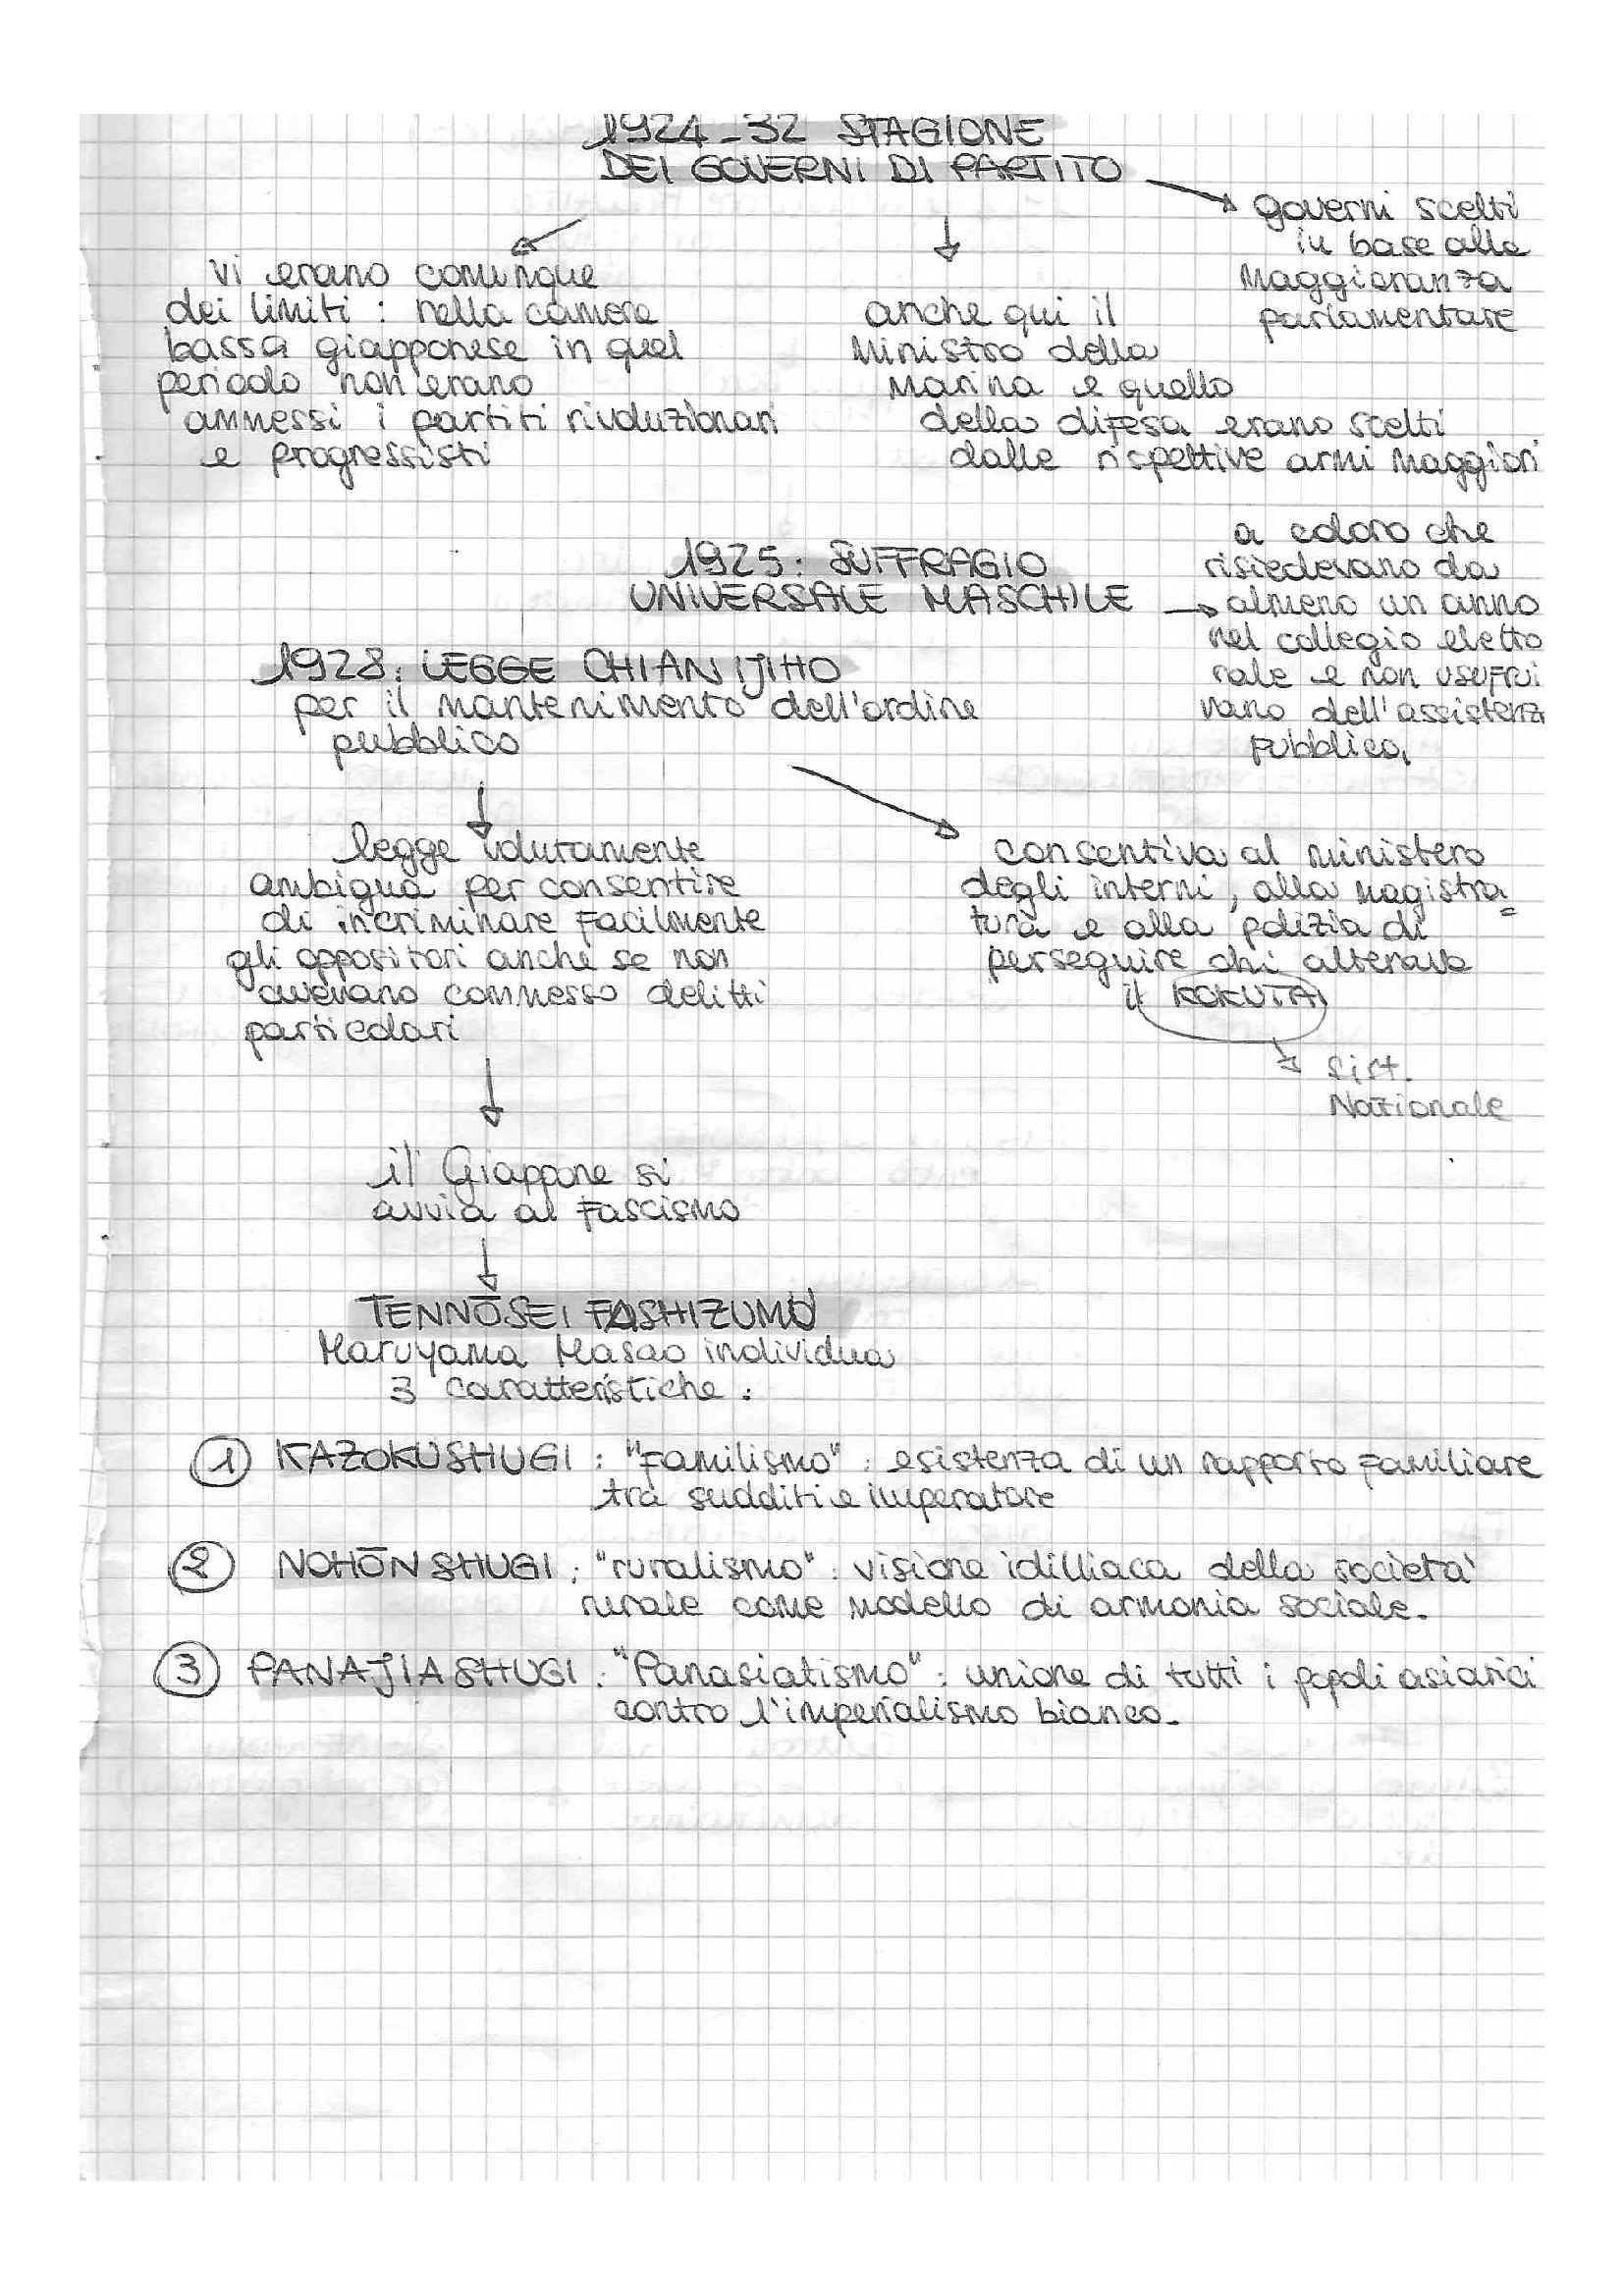 1924-32 STAGIONE
DEI GOVERNI DI PARTITO
governi scelti
in base alla
maggioranza
parlamentare
vi erano comunque
dei limiti: nella camera
bassa giapponese in quel
periodo non erano
ammessi i partiti rivoluzionari
e progressisti
anche qui il
ministro della
marina e quello
della difesa erano scelti
dalle rispettive armi maggiori
1925: SUFFRAGIO
UNIVERSALE MASCHILE
a coloro che
risiedevano da
almeno un anno
nel collegio eletto
rale e non usufrui
vano dell'assistenz
pubblica.
1928: LEGGE CHIAN IJIHO
per il mantenimento dell'ordine
pubblico
legge volutamente
ambigua per consentire
di incriminare facilmente
gli oppositori anche se non
avevano commesso delitti
particolari
consentiva al ministero
degli interni, alla magistra=
tura e alla polizia di
perseguire chi alterava
il KOKUTAI
sist.
Nazionale
il Giappone si
avvia al fascismo
TENNŌSEI FASHIZUMU
Maruyama Masao individua
3 caratteristiche:
1 KAZOKUSHUGI: "familismo": esistenza di un rapporto familiare
tra sudditi e imperatore
2 NOHŌNSHUGI: "ruralismo": visione idilliaca della società
rurale come modello di armonia sociale.
3 PANAJIASHUGI: "Panasiatismo": unione di tutti i popoli asiatici
contro l'imperialismo bianco.